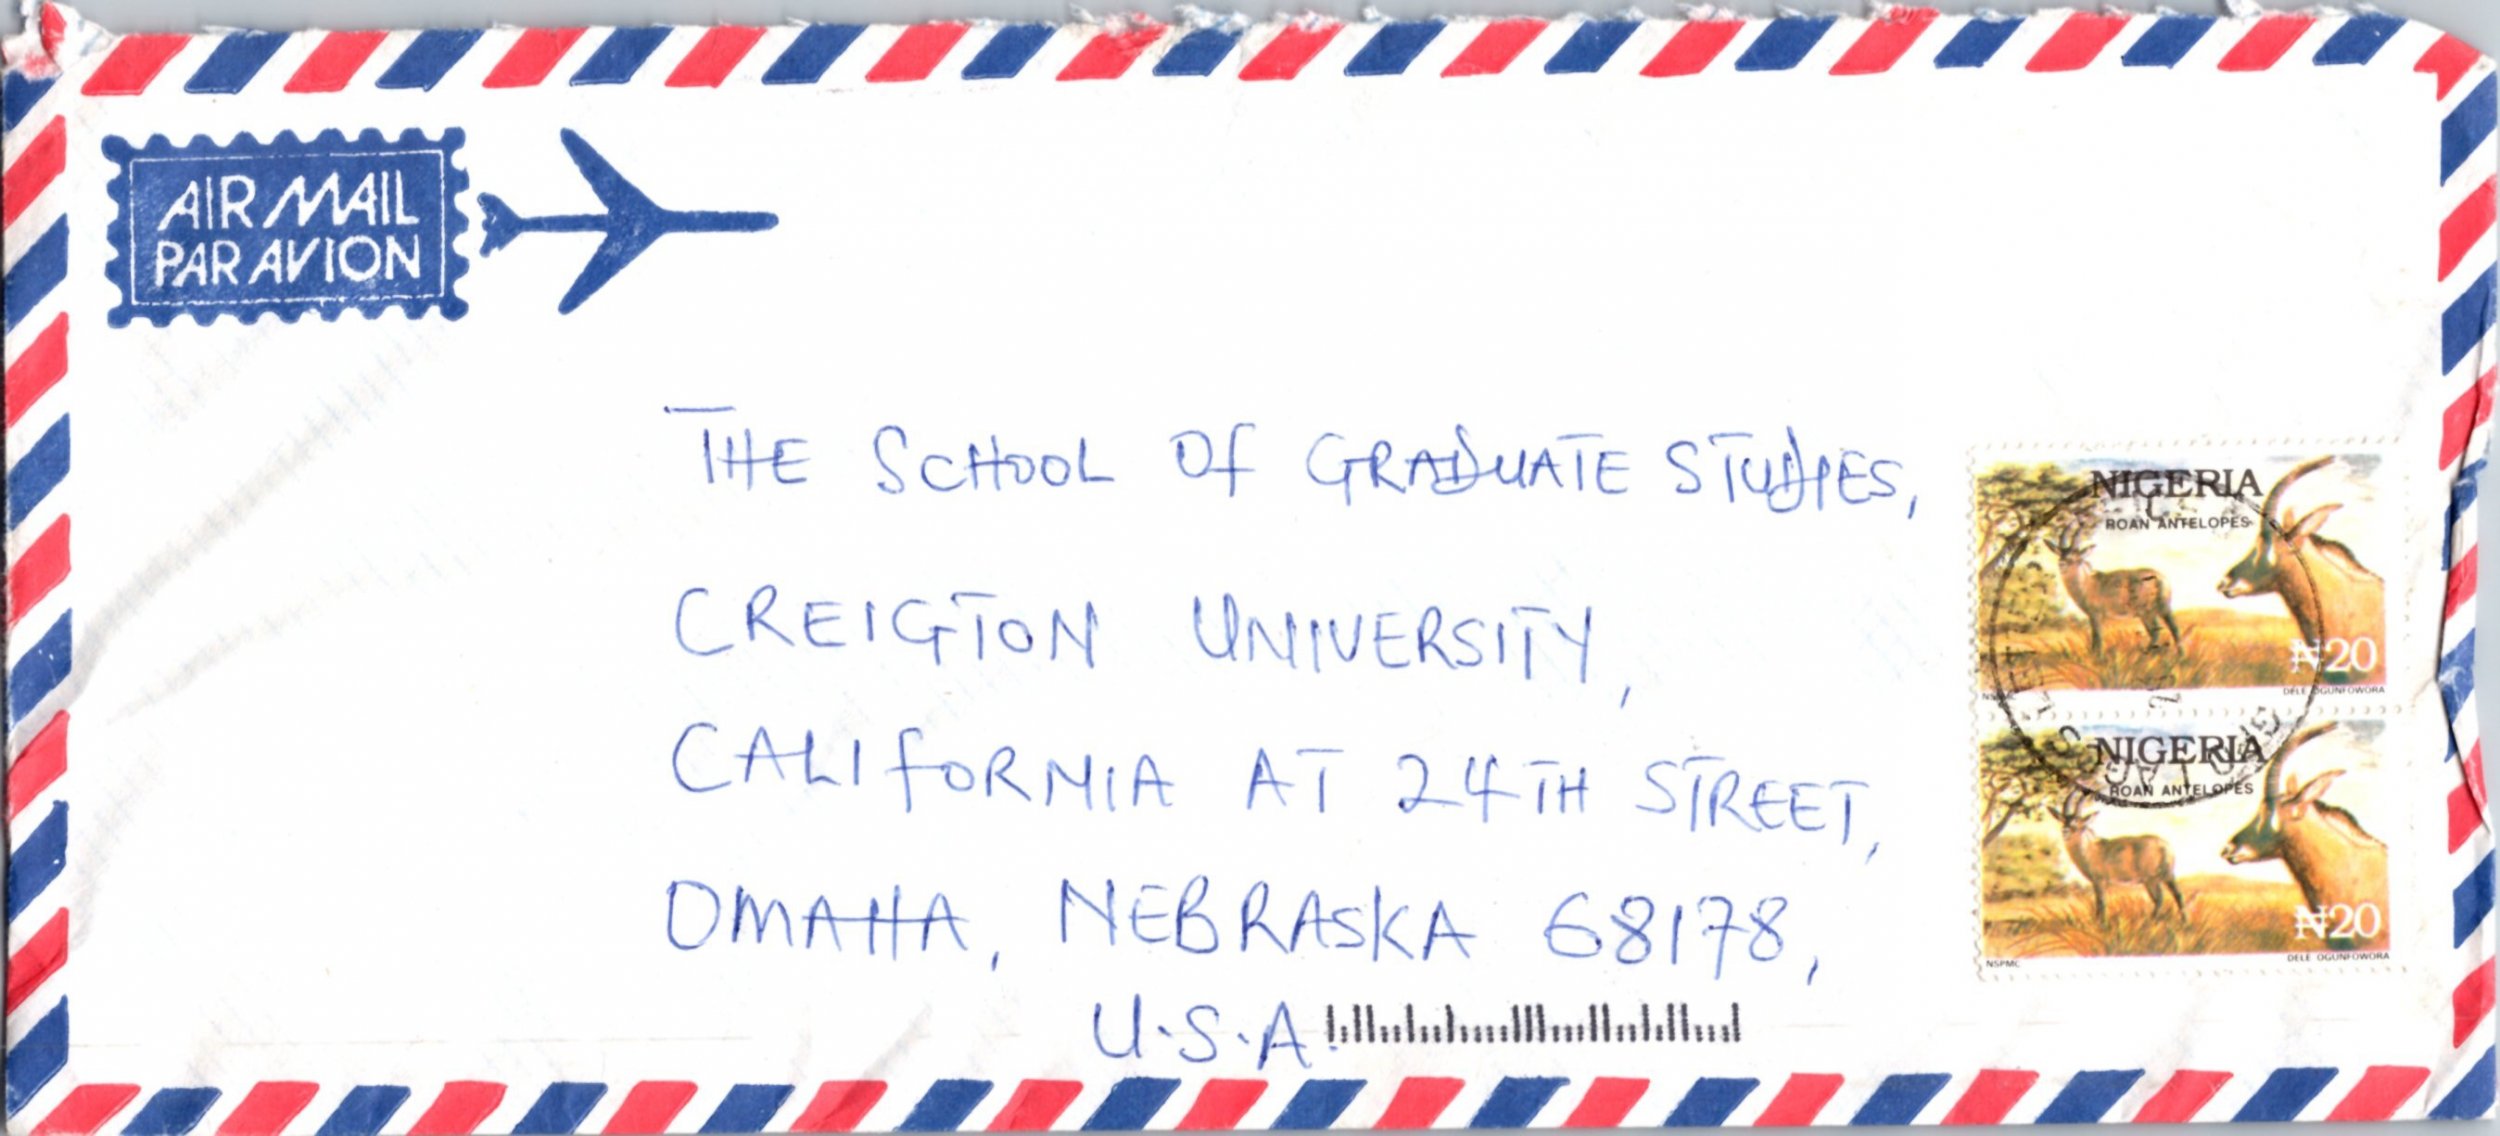 AIR MAIL
PAR AVION
THE SCHOOL Of GRADUATE STUDIES,
CREIGTON UNIVERSITY,
CALIfORNIA AT 24TH STREET,
OMAHA, NEBRASKA 68178,
U.S.A.
NIGERIA
ROAN ANTELOPES
₦20
NSPMC
DELE OGUNFOWORA
NIGERIA
ROAN ANTELOPES
₦20
NSPMC
DELE OGUNFOWORA